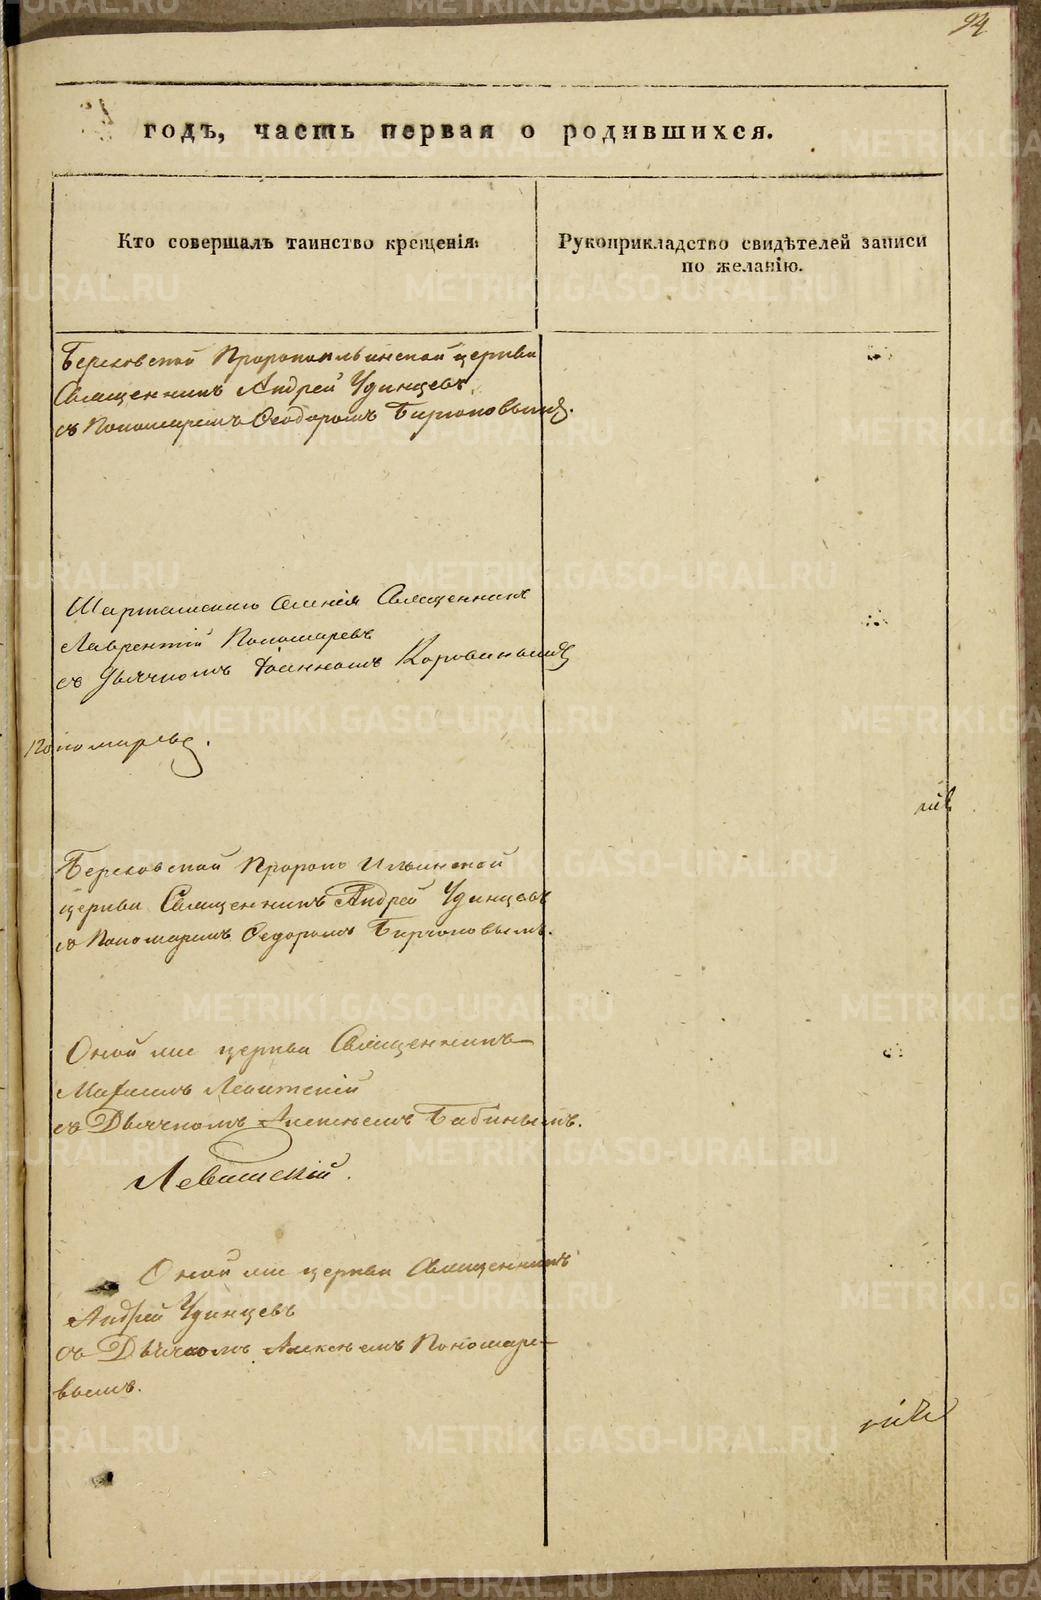 94
годъ, часть первая о родившихся.
Кто совершалъ таинство крещенія.
Рукоприкладство свидѣтелей записи
по желанію.
Березовской Пророкоильинской церкви
Священникъ Андрей Удинцевъ
съ Пономаремъ Ѳеодоромъ Бирюковымъ.
Шарташскаго Священникъ
Лаврентій Пономаревъ
съ Дьячкомъ Іоанномъ Коровинымъ
Пономаревъ.
Березовской Пророко Ильинской
церкви Священникъ Андрей Удинцевъ
съ Пономаремъ Ѳедоромъ Бирюковымъ.
Оной же церкви Священникъ
Левитскій
съ Дьячкомъ Алексѣемъ Бабинымъ.
Левитскій.
Оной же церкви Священникъ
Андрей Удинцевъ
съ Дьячкомъ Алексѣемъ Пономаре-
вымъ.
METRIKI.GASO-URAL.RU